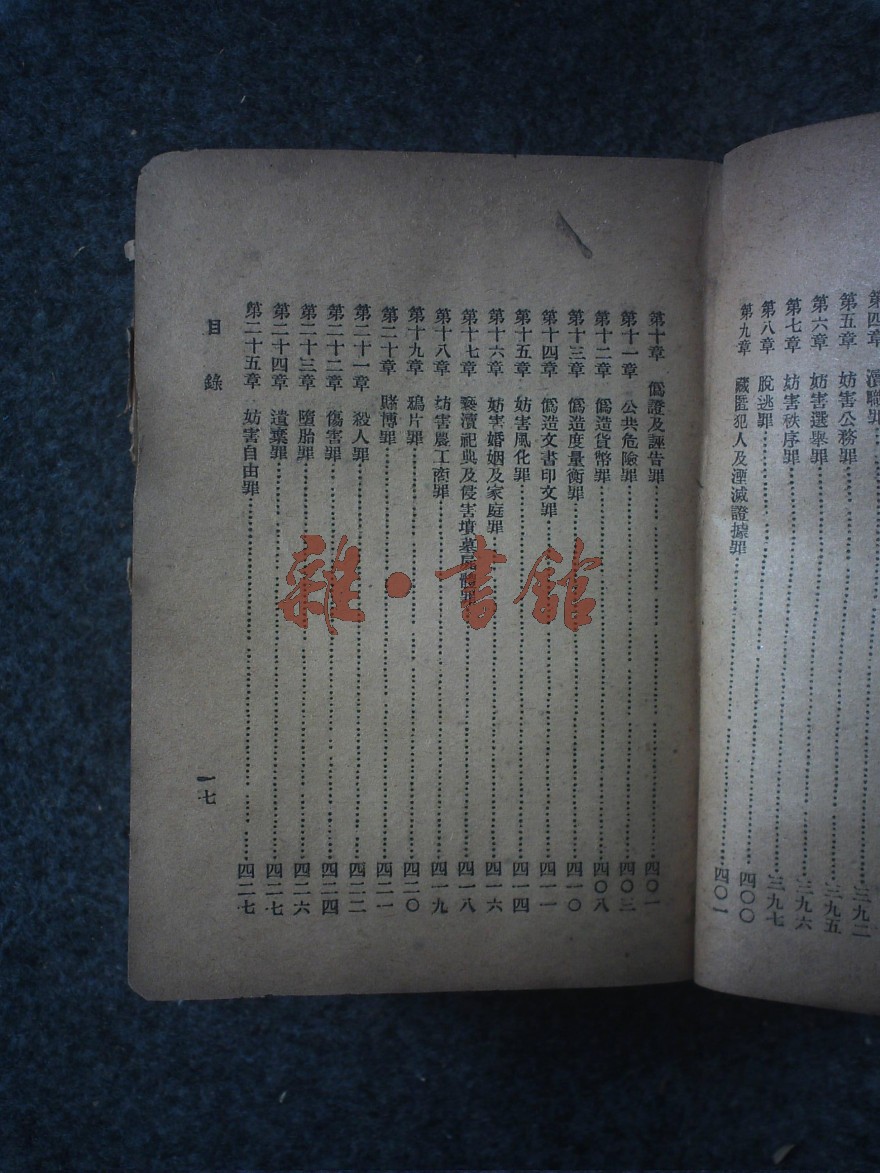 第四章 瀆職罪 三九二
第五章 妨害公務罪 三九五
第六章 妨害選舉罪 三九六
第七章 妨害秩序罪 三九七
第八章 脫逃罪 四〇〇
第九章 藏匿犯人及湮滅證據罪 四〇一
第十章 僞證及誣告罪 四〇一
第十一章 公共危險罪 四〇三
第十二章 僞造貨幣罪 四〇八
第十三章 僞造度量衡罪 四一〇
第十四章 僞造文書印文罪 四一一
第十五章 妨害風化罪 四一四
第十六章 妨害婚姻及家庭罪 四一六
第十七章 褻瀆祀典及侵害墳墓屍體罪 四一八
第十八章 妨害農工商罪 四一九
第十九章 鴉片罪 四二〇
第二十章 賭博罪 四二一
第二十一章 殺人罪 四二二
第二十二章 傷害罪 四二四
第二十三章 墮胎罪 四二六
第二十四章 遺棄罪 四二七
第二十五章 妨害自由罪 四二七
目錄
一七
雜·書館